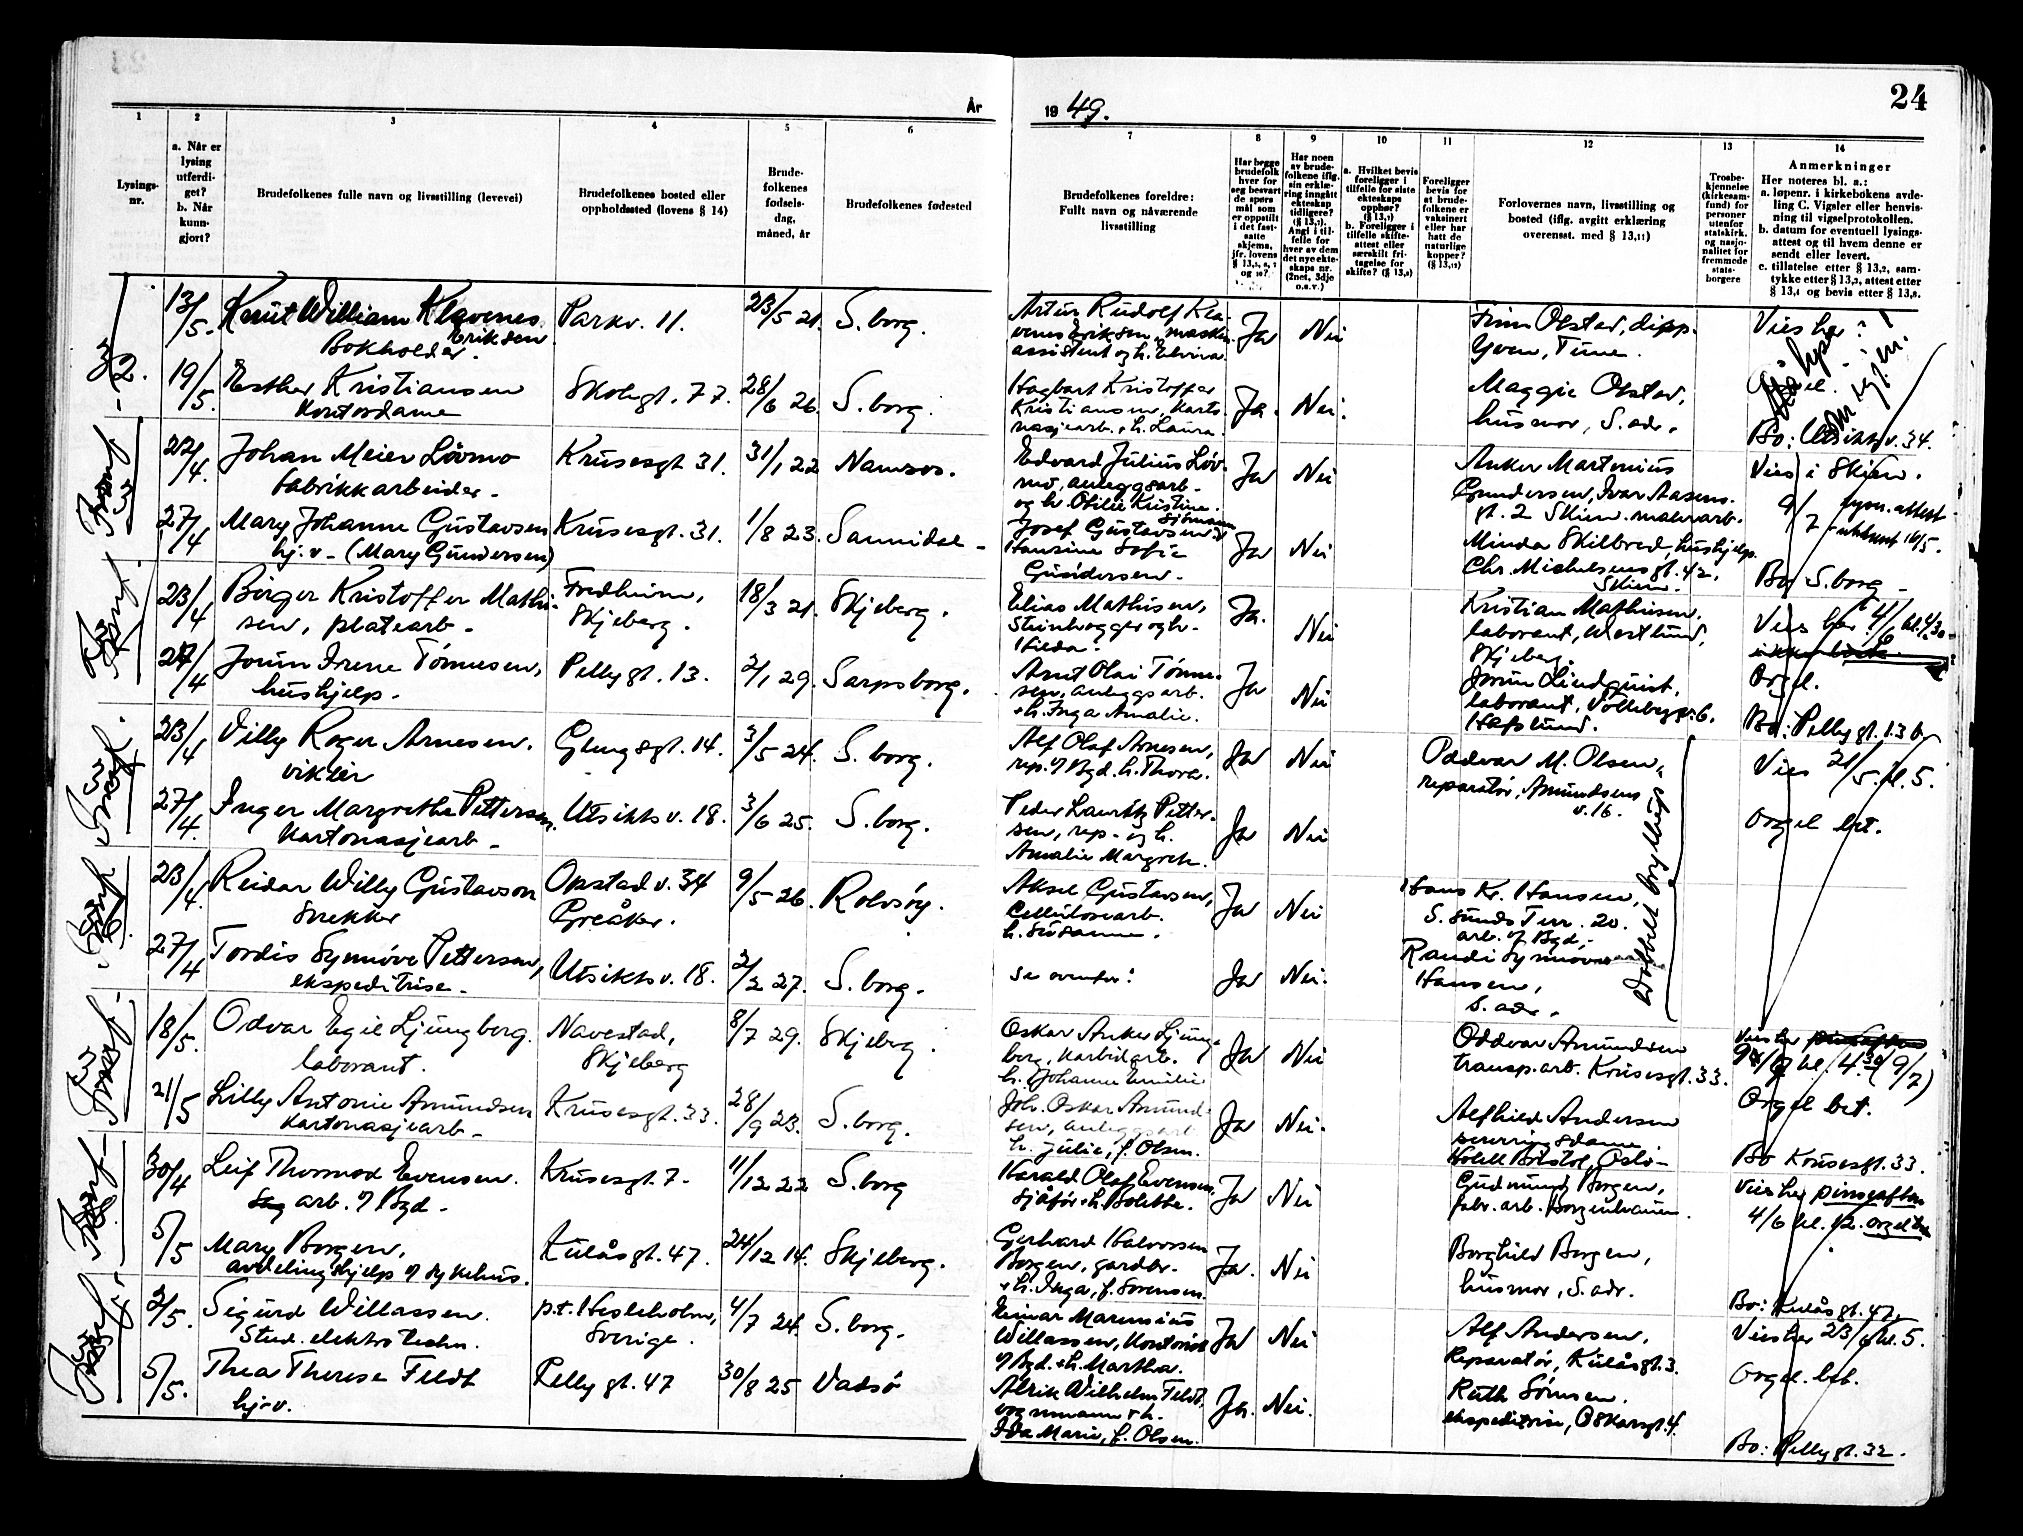 År
1949.
24
1
2
3
4
5
6
7
8
9
10
11
12
13
14
Lysings-
nr.
a. Når er
lysing
utferdi-
get?
b. Når
kunn-
gjort?
Brudefolkenes fulle navn og livsstilling (levevei)
Brudefolkenes bosted eller
oppholdssted (lovens § 14)
Brude-
folkenes
fødsels-
dag,
måned, år
Brudefolkenes fødested
Brudefolkenes foreldre:
Fullt navn og nåværende
livsstilling
Har begge
brudefolk
hver for
seg besvart
de spørs-
mål som
er oppstilt
i det fast-
satte
skjema,
jfr. lovens
Har noen
av brude-
folkene iflg.
sin erklæ-
ring inngått
ekteskap
tidligere?
Angi i til-
felle for
hver av dem
det nye ekte-
skaps nr.
(2net, 3dje
o.s.v.)
a. Hvilket bevis
foreligger i
tilfelle for siste
ekteskaps
opphør?
b. Foreligger i
tilfelle skifte-
attest eller
særskilt fri-
tagelse for
skifte?
Foreligger
bevis for
at brude-
folkene er
vaksinert
eller har
hatt de
naturlige
kopper?
Forlovernes navn, livsstilling og
bosted (iflg. avgitt erklæring
overensst. med § 13,11)
Trosbe-
kjennelse
(kirkesam-
fund) for
personer
utenfor
statskirk.
og nasjo-
nalitet for
fremmede
stats-
borgere
Anmerkninger
Her noteres bl. a.:
a. løpenr. i kirkebokens avde-
ling C. Vigsler eller henvis-
ning til vigselprotokollen.
b. datum for eventuell lysings-
attest og til hvem denne er
sendt eller levert.
c. tillatelse etter § 13,2, sam-
tykke etter § 13,3, attest etter
§ 13,4 og bevis etter § 13,8.
13/5. Knut William Klavenes Eriksen Parkv. 11. 23/5 21. S.borg.
Bokholder.
Artur Rudolf Kla-
venes Eriksen, maskin
assistent og h. Elvira.
Ja Nei
Finn Olstad, dipp.
Tune.
Vies her
19/5. Esther Kristiansen Skolegt. 77. 28/6 26. S.borg.
Kontordame
Hagbart Kristoffer
Kristiansen, karto-
nasjearb. + h. Laura.
Ja. Nei.
Maggie Olstad,
husmor, S. adr.
Bo: Utsiktsv. 34.
22/4. Johan Meier Løvmo Krusesgt 31. 31/1 22 Namsos.
fabrikkarbeider.
Edvard Julius Løv-
mo, anleggsarb.
og h. Otilie Kristine.
Ja Nei
Anker Martinius
Gundersen, Ivar Aasens-
gt. 2 Skien. malerarb.
Vies i Skien.
27/4 Mary Johanne Gustavsen Krusesgt. 31. 1/8 23. Sannidal
hj.v. (Mary Gundersen)
Josef Gustavsen
Hansine Sofie
Gundersen.
Ja Nei
Minda Skilbred, hushjelp.
Chr. Michelsens gt. 42,
Skien.
Bo S.borg
23/4 Birger Kristoffer Mathi- Fredheim, 18/3 21. Skjeberg.
sen, platearb. Skjeberg.
Elias Mathisen,
Steinhugger og h.
Hilda.
Ja. Nei
Kristian Mathisen,
laborant,
Skjeberg.
Vies her 4/6 kl. 4.30
27/4 Jorun Irene Tønnesen, Pellygt. 13. 2/1 29. Sarpsborg.
hushjelp.
Arnt Olai Tønne-
sen, anleggsarb.
+ h. Inga Amalie.
Ja Nei
Jorun Lindquist,
laborant,
Hafslund.
Orgel.
Bo: Pellygt. 13 b
23/4 Villy Roger Arnesen. Glengsgt. 14. 3/5 24. S.borg.
vikler
Alf Olaf Arnesen,
rep. v/ Bgd. h. Thora.
Ja Nei
Oddvar M. Olsen,
reparatør, Amundsens
v. 16.
Vies 21/5. kl. 5.
Dobbelt bryllup
27/4. Inger Margrethe Pettersen. Utsiktsv. 18. 3/6 25. S.borg.
Kartonasjearb.
Peder Lauritz Petter-
sen, rep. og h.
Amalie Margreth.
Ja Nei
Orgel bet.
23/4. Reidar Willy Gustavson Opstadv. 34 9/5 26. Rolvsøy.
Snekker Greåker.
Aksel Gustavsen,
Cellulosearb.
h. Susanne.
Ja Nei
Hans Kr. Hansen,
S. Sunds Terr. 20.
arb. v/ Bgd.
27/4 Tordis Synnøve Pettersen, Utsiktsv. 18. 2/2 27. S.borg.
ekspeditrise.
se ovenfor!
Ja Nei.
Randi Synnøve
Hansen,
S. adr.
18/5. Odvar Egil Ljungberg. Navestad, 8/7 29. Skjeberg.
laborant. Skjeberg
Oskar Anker Ljung-
berg, Karbidarb.
h. Johanne Emilie
Ja Nei
Oddvar Amundsen
transp.arb. Krusesgt. 33.
Vies her
kl. 4.30 (9/7)
21/5 Lilly Antonie Amundsen Krusesgt. 33. 28/9 23. S.borg.
Kartonasjearb.
Joh. Oskar Amund-
sen, anleggsarb
h. Julie, f. Olsen.
Ja Nei.
Alfhild Andersen
serveringsdame
Hotell Bristol, Oslo
Orgel bet.
Bo Krusesgt. 33.
30/4 Leif Thormod Evensen. Krusesgt. 7. 11/12 22 S.borg
arb. v/ Bgd.
Harald Olaf Evensen,
sjåfør + h. Bolette.
Ja Nei
Gudmund Borgen,
fabr. arb. Borgenhaugen.
Vies her pinseaften
4/6 kl. 12. orgel bet
5/5 Mary Borgen, Kulåsgt. 47. 24/12 14. Skjeberg.
avdelingshjelp v/ sykehus.
Gerhard Halvorsen
Borgen, gardbr.
+ h. Inga, f. Sørensen.
Ja. Nei
Borghild Borgen,
husmor, S. adr.
Bo: Kulåsgt. 47.
2/5. Sigurd Willassen. p.t. Hesleholm, 4/7 24. S.borg.
Stud. elektrotechn. Sverige.
Einar Marensius
Willassen, Kontorist
v/ Bgd. + h. Martha.
Ja Nei
Alf Andersen,
Reparatør, Kulåsgt. 3.
Vies her 23/6 kl. 5.
5/5. Thea Therese Feldt Pellygt. 47 30/8 25 Vadsø
hj.v.
Alrik Wilhelm Feldt,
vognmann + h.
Ida Marie, f. Olsen.
Ja. Nei.
Ruth Sørensen.
ekspeditrise, Oskarsgt 4.
Orgel. bet.
Bo: Pellygt. 32.